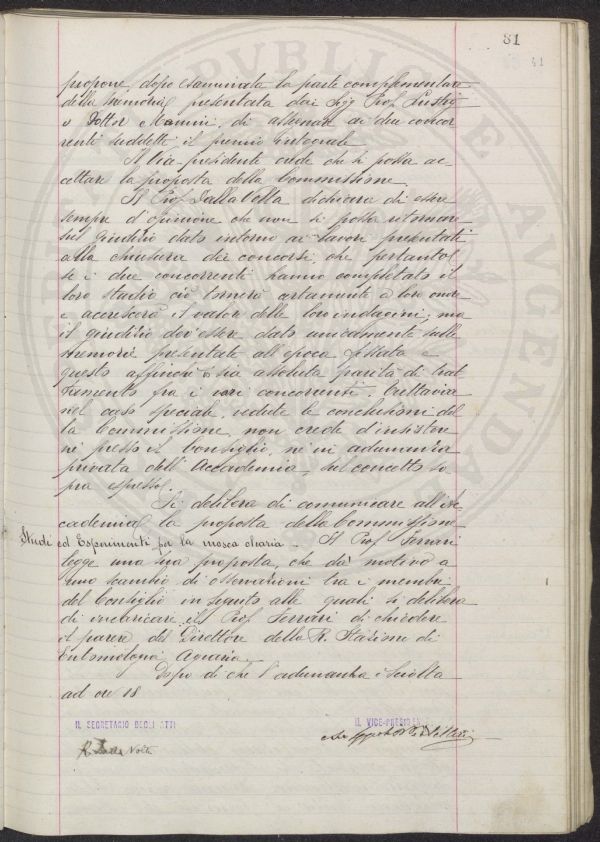 81
41
propone, dopo esaminata la parte complementare
della memoria presentata dai Sigg Prof. Lustig
e Dottor Mannini, di assegnare ai due concor
renti suddetti il premio integrale.
Il Vice-presidente crede che si possa ac
cettare la proposta della Commissione.
Il Prof. Dalla Volta dichiara di essere
sempre d'opinione che non si possa ritornare
sul giudizio dato intorno ai lavori presentati
alla chiusura dei concorsi, che pertanto
se i due concorrenti hanno completato il
loro studio ciò tornerà certamente a loro onore
e accrescerà il valore delle loro indagini; ma
il giudizio dev'essere dato unicamente sulle
memorie presentate all'epoca fissata e
questo affinchè vi sia assoluta parità di trat
tamento fra i vari concorrenti. Tuttavia
nel caso speciale, vedute le conclusioni del
la Commissione, non crede d'insistere
nè presso il Consiglio, nè in adunanza
privata dell'Accademia, sul concetto so
pra espresso.
Si delibera di comunicare all'Ac
cademia la proposta della Commissione.
Studi ed Esperimenti per la mosca olearia - Il Prof. Ferrari
legge una sua proposta, che dà motivo a
uno scambio di osservazioni tra i membri
del Consiglio in seguito alle quali si delibera
di incaricare il Prof. Ferrari di chiedere
il parere del Direttore della R. Stazione di
Entomologia Agraria.
Dopo di che l'adunanza è sciolta
ad ore 18
IL SEGRETARIO DEGLI ATTI
IL VICE-PRESIDENTE
R. Dalla Volta